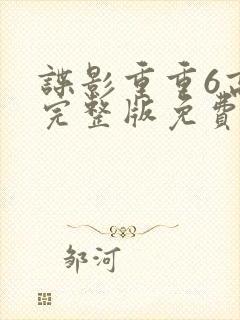 谍影重重6高
完整版免费
邹河